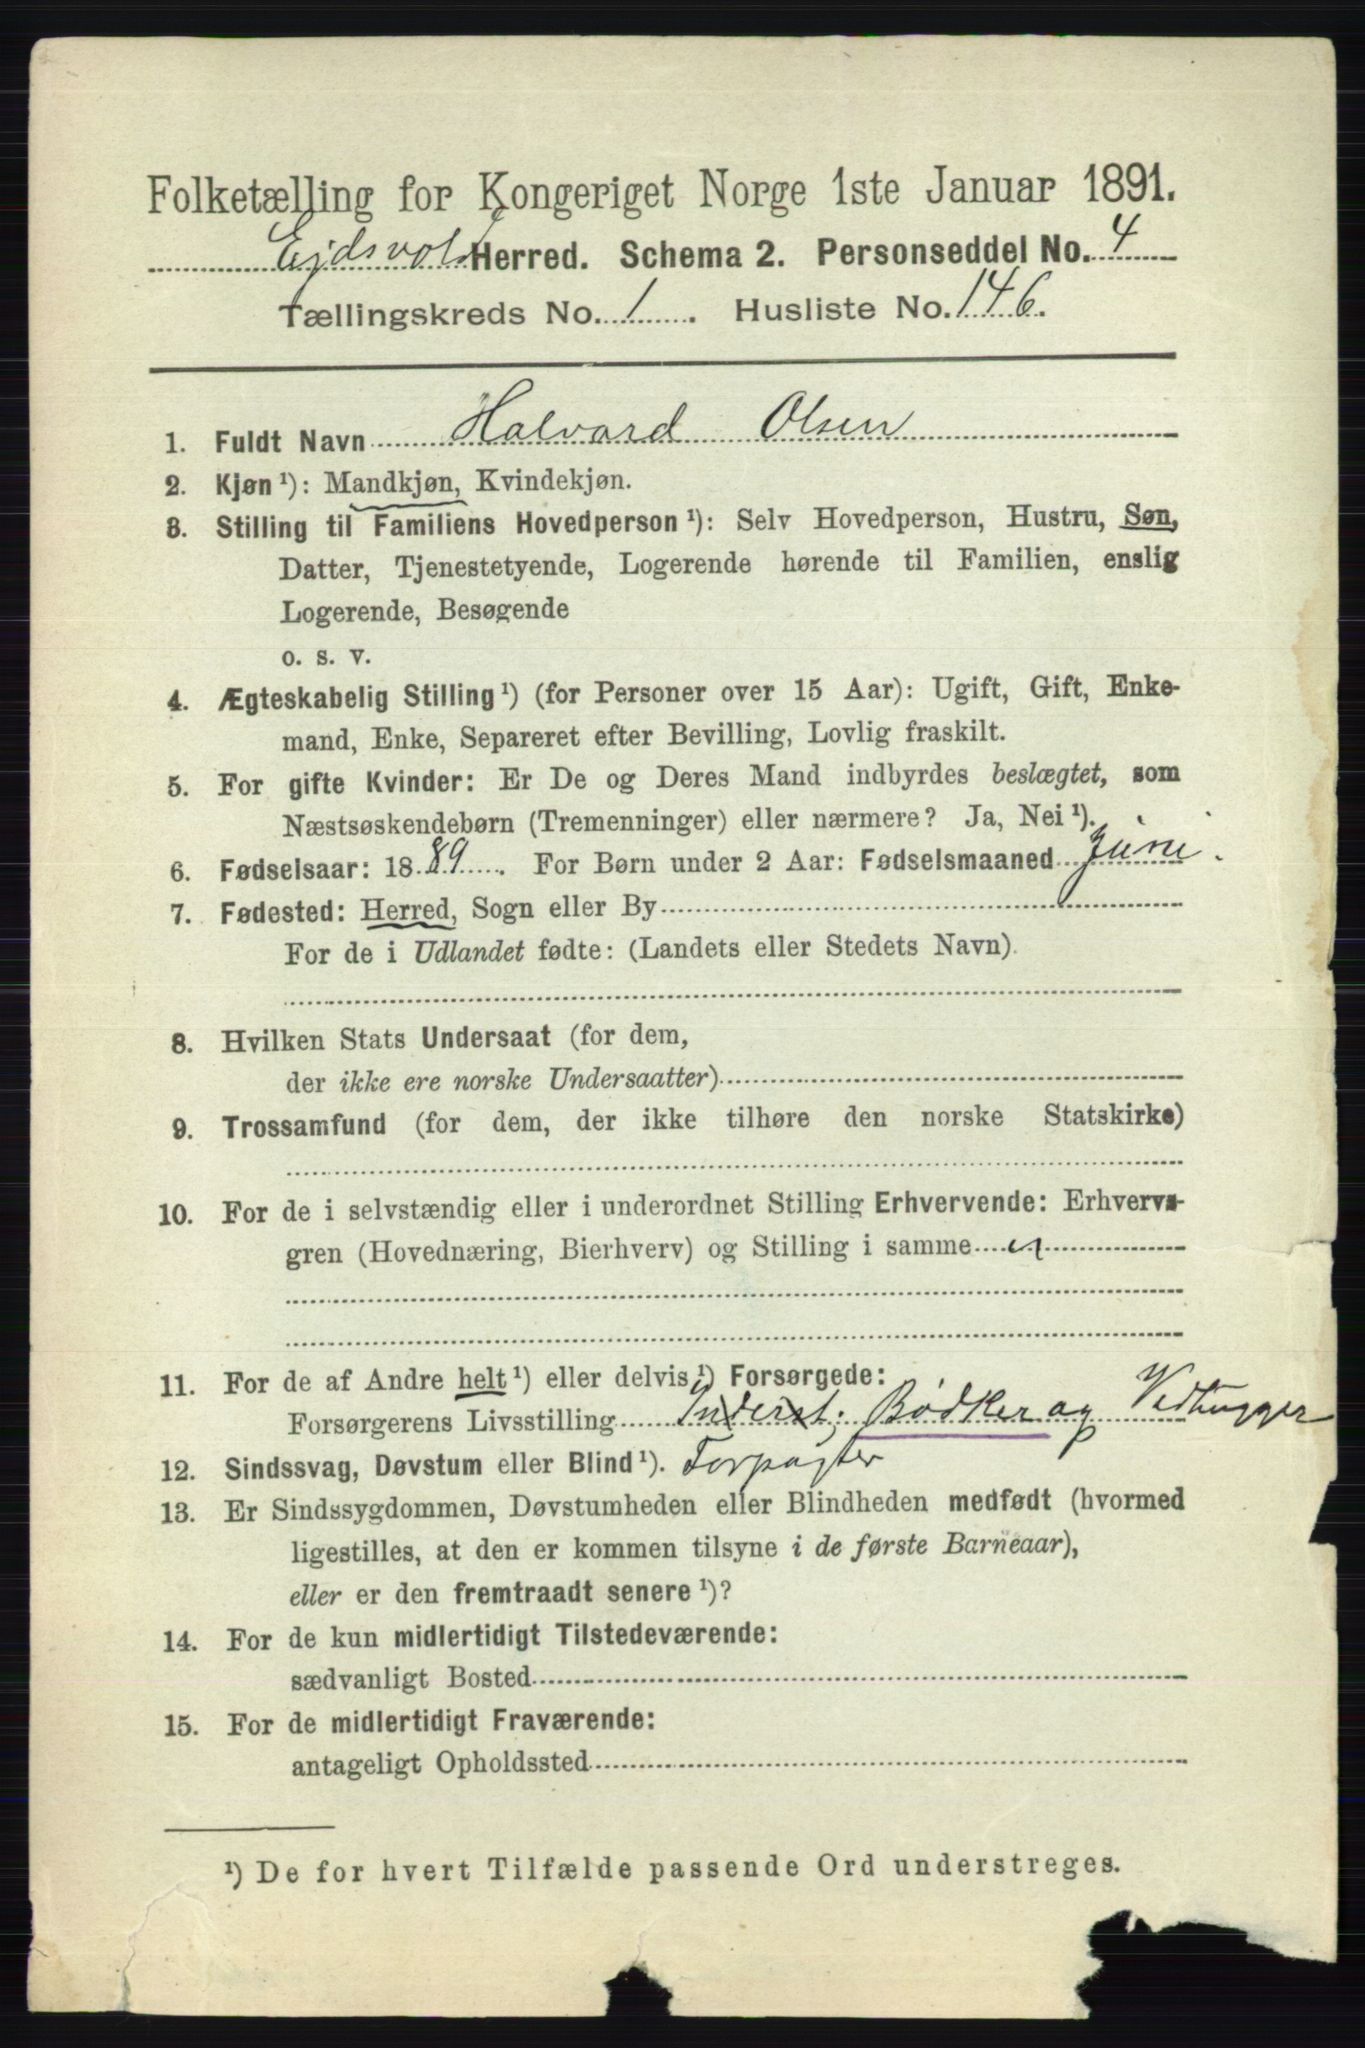 Folketælling for Kongeriget Norge 1ste Januar 1891.
Ejdsvold Herred. Schema 2. Personseddel No. 4
Tællingskreds No. 1. Husliste No. 146.
1. Fuldt Navn Halvard Olsen
2. Kjøn ¹): Mandkjøn, Kvindekjøn.
3. Stilling til Familiens Hovedperson ¹): Selv Hovedperson, Hustru, Søn,
Datter, Tjenestetyende, Logerende hørende til Familien, enslig
Logerende, Besøgende
o. s. v.
4. Ægteskabelig Stilling ¹) (for Personer over 15 Aar): Ugift, Gift, Enke-
mand, Enke, Separeret efter Bevilling, Lovlig fraskilt.
5. For gifte Kvinder: Er De og Deres Mand indbyrdes beslægtet, som
Næstsøskendebørn (Tremenninger) eller nærmere? Ja, Nei ¹).
6. Fødselsaar: 1889. For Børn under 2 Aar: Fødselsmaaned Juni.
7. Fødested: Herred, Sogn eller By
For de i Udlandet fødte: (Landets eller Stedets Navn)
8. Hvilken Stats Undersaat (for dem,
der ikke ere norske Undersaatter)
9. Trossamfund (for dem, der ikke tilhøre den norske Statskirke)
10. For de i selvstændig eller i underordnet Stilling Erhvervende: Erhvervs-
gren (Hovednæring, Bierhverv) og Stilling i samme
11. For de af Andre helt ¹) eller delvis ¹) Forsørgede:
Forsørgerens Livsstilling Inderst; Bødker og Vedhugger
Forpagter
12. Sindssvag, Døvstum eller Blind ¹).
13. Er Sindssygdommen, Døvstumheden eller Blindheden medfødt (hvormed
ligestilles, at den er kommen tilsyne i de første Barneaar),
eller er den fremtraadt senere ¹)?
14. For de kun midlertidigt Tilstedeværende:
sædvanligt Bosted
15. For de midlertidigt Fraværende:
antageligt Opholdssted
¹) De for hvert Tilfælde passende Ord understreges.